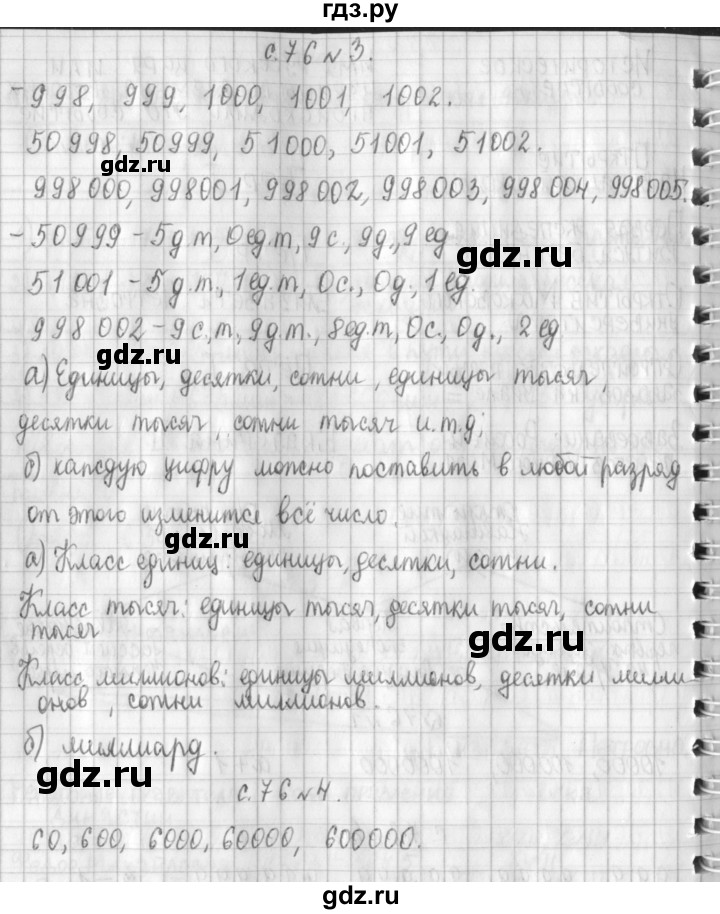 гдз.ру
с.76 №3.
-998, 999, 1000, 1001, 1002.
50998, 50999, 51000, 51001, 51002.
gdz.ru
998000, 998001, 998002, 998003, 998004, 998005.
-50999 - 5д.т, 0ед.т, 9с., 9д., 9 ед
gdz.ru
51001 - 5д.т., 1ед.т, 0с., 0д., 1 ед.
998002 - 9с.,т., 9д.т., 8ед.т, 0с., 0д., 2 ед
gdz.ru
а) Единицы, десятки, сотни, единицы тысяч,
десятки тысяч, сотни тысяч и.т.д;
б) каждую цифру можно поставить в любой разряд
от этого изменится всё число.
gdz.ru
а) Класс единиц: единицы, десятки, сотни.
Класс тысяч: единицы тысяч, десятки тысяч, сотни
тысяч
gdz.ru
Класс миллионов: единицы миллионов, десятки милли-
онов, сотни миллионов.
б) миллиард.
gdz.ru
с.76 №4.
60, 600, 6000, 60000, 600000.
gdz.ru
gdz.ru